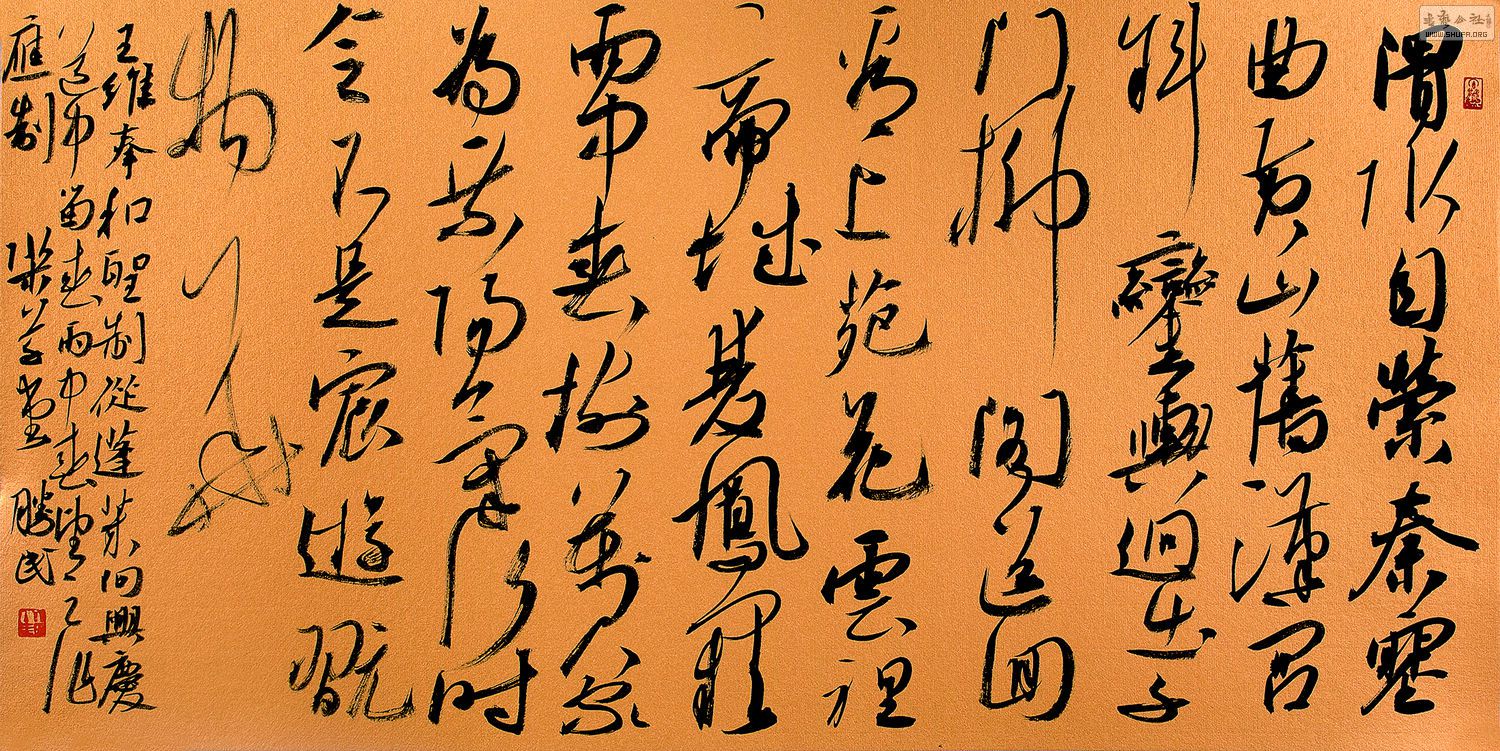 渭水自縈秦塞
曲黃山舊漢宮
斜鑾輿迥出千
門柳閣道回
看上苑花雲裡
帝城雙鳳闕
雨中春樹萬人家
為乘陽氣行時
令不是宸遊翫
物華
王維奉和聖制從蓬萊向興慶
道中留春雨中春望之作
應制 堂 勝民
书艺公社
WWW.SHUFA.ORG